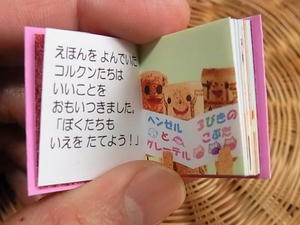 えほんを よんでいた
コルクンたちは
いいことを
おもいつきました。
「ぼくたちも
いえを たてよう!」
ヘンゼル
と
グレーテル
3びきの
こぶた